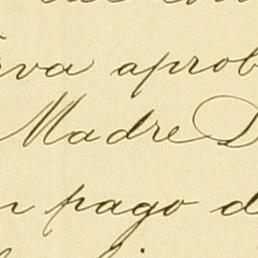 rva aprob
Madre D
n pago d